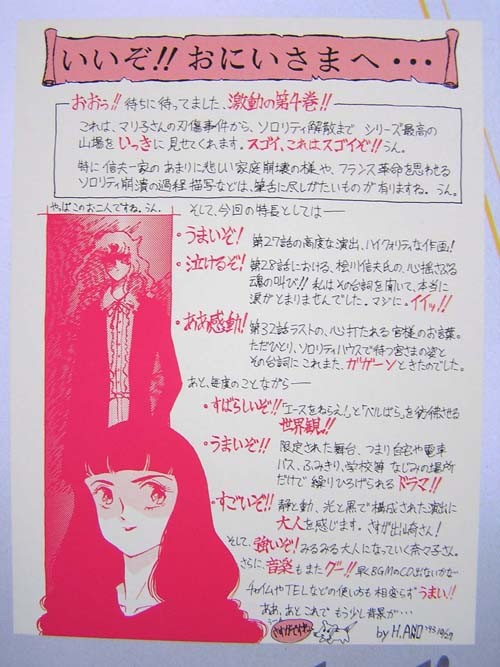 いいぞ!! おにいさまへ・・・
おおっ!! 待ちに待ってました、激動の第4巻!!
これは、マリ子さんの刃傷事件から、ソロリティ解散まで シリーズ最高の
山場を いっきに 見せてくれます。スゴイ、これはスゴイぞ!! うん。
特に信夫一家の あまりに悲しい 家庭崩壊の様や、フランス革命を思わせる
ソロリティ崩潰の過程描写などは、筆舌に尽しがたいものが有りますね。うん。
やっぱこのお二人ですね。うん。
そして、今回の特長としては——
・うまいぞ! 第27話の高度な演出、ハイクォリティな作画!
・泣けるぞ! 第28話における、桧川信夫氏の、心揺さぶる
魂の叫び!! 私はその台詞を聞いて、本当に
涙がとまりませんでした。マジに。イイッ!!
・ああ感動! 第32話ラストの、心打たれる 宮様のお言葉。
ただひとり、ソロリティハウスで待つ宮さまの姿と
その台詞にこれまた、ガガーンときたのでした。
あと、毎度のことながら——
・すばらしいぞ!! 「エースをねらえ!」と「ベルばら」を彷彿させる
世界観!!
・うまいぞ!! 限定された舞台、つまり自宅や電車
バス、ふみきり、学校等 なじみの場所
だけで 繰りひろげられる ドラマ!!
・すごいぞ!! 静と動、光と黒で構成された演出に
大人を感じます。さすが出崎さん!
そして、強いぞ! みるみる大人になっていく奈々子さん。
さらに、音楽もまたグー!! 早くBGMのCD出ないかな
チャイムやTELなどの使い方も 相変らず うまい!!
ああ、あとこれで もう少し背景が・・・
by H.ANO '93